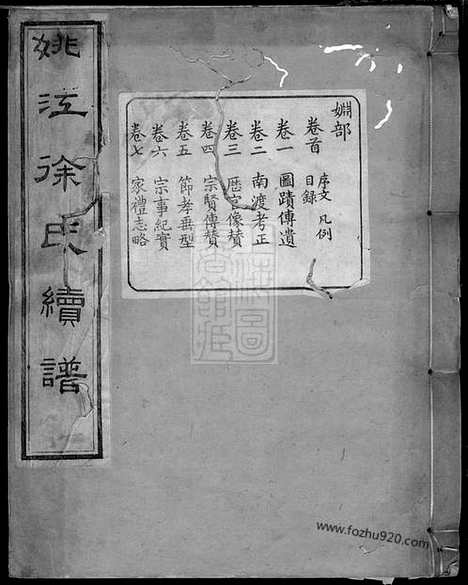 姚江徐氏續譜
婣部
卷首 序文 凡例 目錄
卷一 圖蹟傳遺
卷二 南渡考正
卷三 歷官像贊
卷四 宗賢傳贊
卷五 節孝垂型
卷六 宗事紀實
卷七 家禮志略
www.fozhu920.com